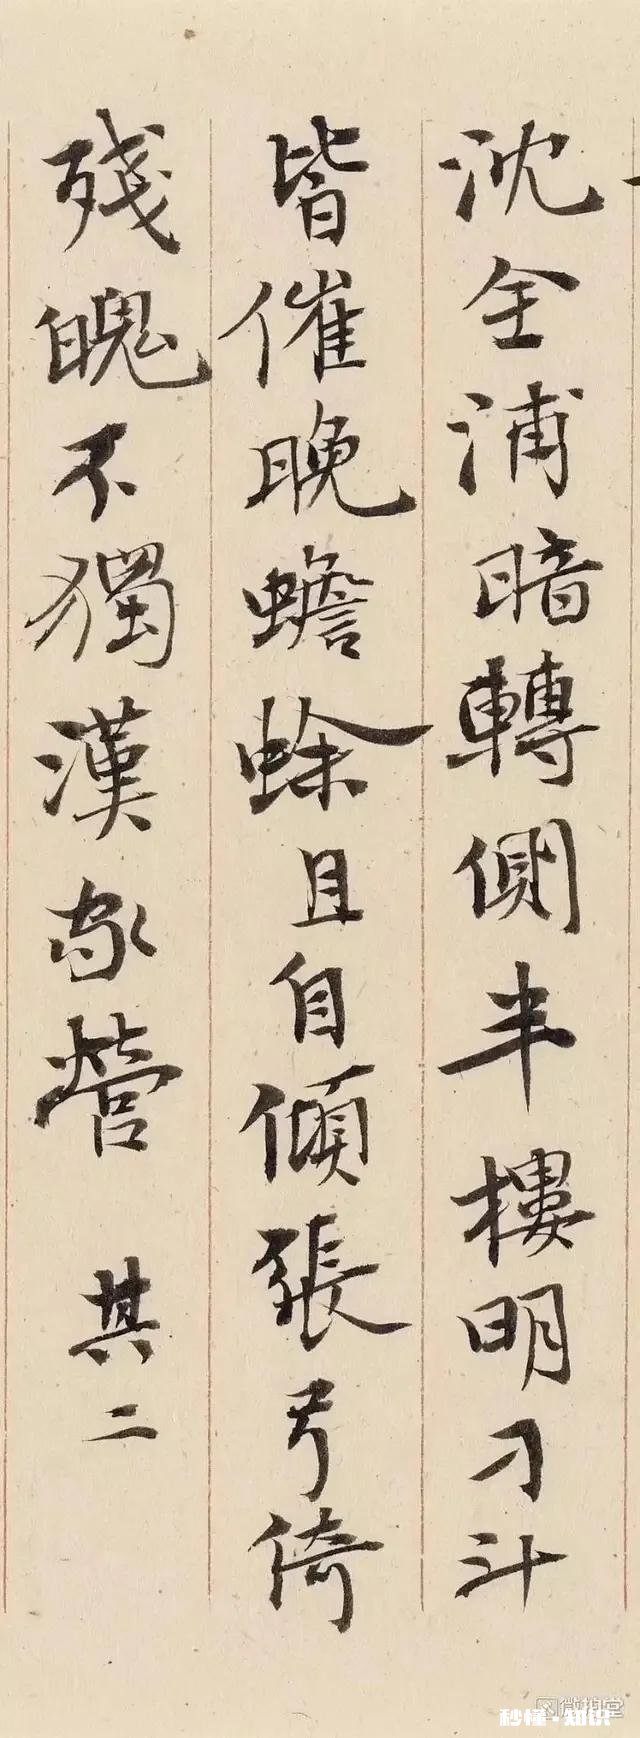 沈全浦暗轉側半樓明刁斗
皆催晚蟾蜍且自傾張弓倚
殘魄不獨漢家營 其二
微拍堂
秒懂·知识